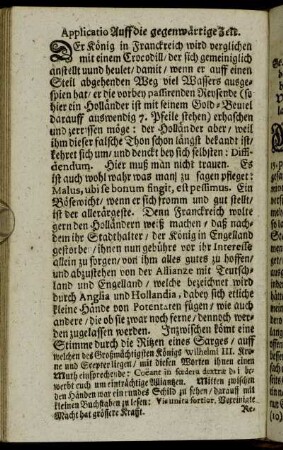 Applicatio Auff die gegenwärtige Zeit.
DEr König in Franckreich wird verglichen
mit einem Crocodill/ der sich gemeiniglich
anstellt uund heulet/ damit/ wenn er auff einen
Steil abgehenden Weg viel Wassers ausge-
spien hat/ er die vorbey passirenden Reysende (so
hier ein Holländer ist mit seinem Gold-Beutel
darauff auswendig 7. Pfeile stehen) erhaschen
und zerrissen möge: der Holländer aber/ weil
ihm dieser falsche Thon schon längst bekandt ist/
kehret sich um/ und denckt bey sich selbsten: Diffi-
dendum. Hier muß man nicht trauen. Es
ist auch wohl wahr was man zu sagen pfleget:
Malus, ubi se bonum fingit, est pessimus. Ein
Bösewicht/ wenn er sich fromm und gut stellt/
ist der allerärgeste. Denn Franckreich wolte
gern den Holländern weiß machen/ daß nach-
dem ihr Stadthalter/ der König in Engelland
gestorben/ ihnen nun gebühre vor ihr Interesse
allein zu sorgen/ von ihm alles gutes zu hoffen/
und abzustehen von der Allianze mit Teutsch-
land und Engelland/ welche bezeichnet wird
durch Anglia und Hollandia, dabey sich etliche
kleine Hände von Potentaten fügen/ wie auch
andere/ die ob sie zwar noch ferne/ dennoch wer-
den zugelassen werden. Inzwischen kömt eine
Stimme durch die Ritzen eines Sarges/ auff
welchen des Großmächtigsten Königs Wilhelmi III. Kro-
ne und Scepter liegen/ mit diesen Worten ihnen einen
Muth einsprechende: Coëant in fœdera dextræ
werbt euch um einträchtige Alliantzen. Mitten zwischen
den Händen war ein rundes Schild zu sehen/ darauff mit
kleinen Buchstaben zu lesen: Vis unita fortior. Vereinigte
Macht hat grössere Krafft.
Re-